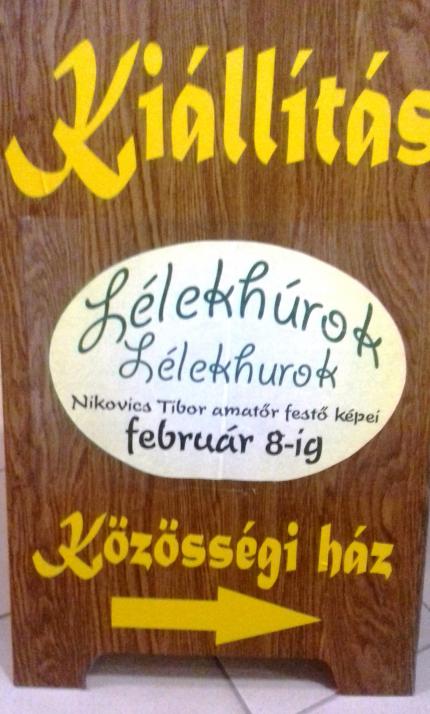 Kiállítás
Lélekhúrok
Lélekhurok
Nikovics Tibor amatőr festő képei
február 8-ig
Közösségi ház